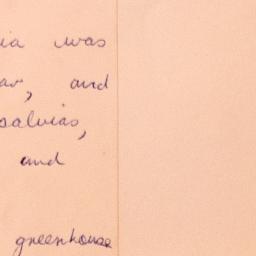 was
and
salvias,
and
greenhouse